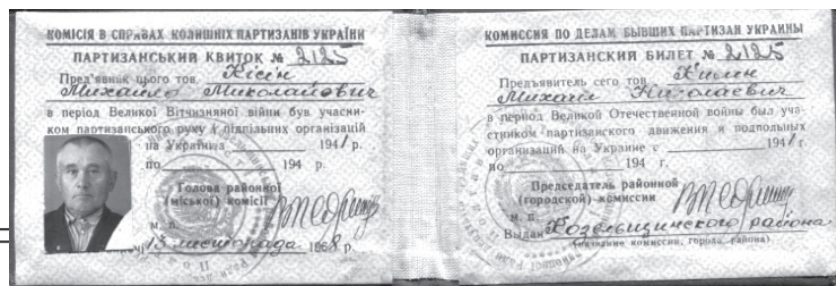 КОМІСІЯ В СПРАВАХ КОЛИШНІХ ПАРТИЗАНІВ УКРАЇНИ
ПАРТИЗАНСЬКИЙ КВИТОК № 2125
Пред'явник цього тов.
Михайло Миколайович
в період Великої Вітчизняної війни був учасни-
ком партизанського руху і підпільних організацій
на Україні з 1941 р.
по 194 р.
Голова районної
(міської) комісії
м. п.
13 листопада 1968 р.
КОМИССИЯ ПО ДЕЛАМ БЫВШИХ ПАРТИЗАН УКРАИНЫ
ПАРТИЗАНСКИЙ БИЛЕТ № 2125
Предъявитель сего тов.
Михаил Николаевич
в период Великой Отечественной войны был уча-
стником партизанского движения и подпольных
организаций на Украине с 1941 г.
по 194 г.
Председатель районной
(городской) комиссии
м. п.
Выдан Козельщинского района
(название комиссии, города, района)